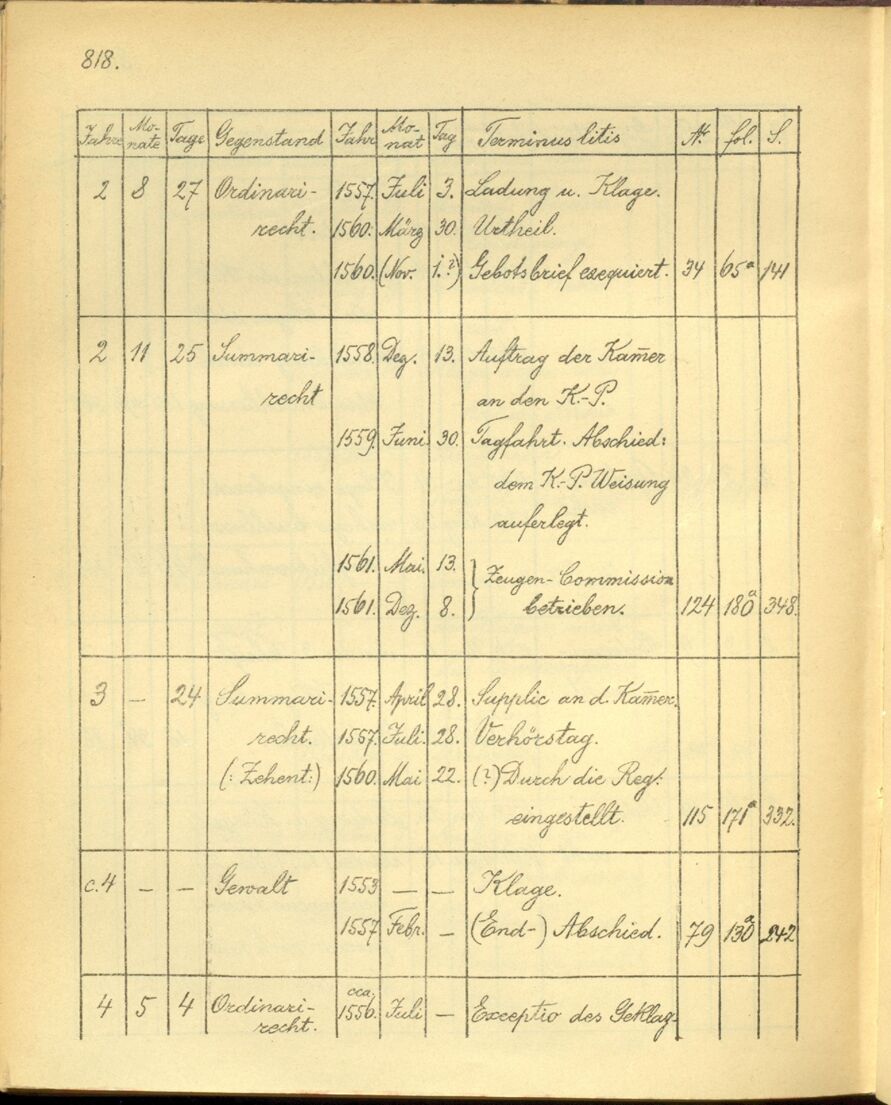 818.
Jahre Mo-nate Tage Gegenstand Jahr Mo-nat Tag Terminus litis Nr. fol. S.
2 8 27 Ordinari- 1557. Juli 3. Ladung u. Klage.
recht. 1560. März 30. Urtheil.
1560. (Nov. 1.?) Gebotsbrief exequiert. 34 65a 141
2 11 25 Summari- 1558. Dez. 13. Auftrag der Kam̄er
recht an den K.-P.
1559. Juni. 30. Tagfahrt. Abschied:
dem K.-P. Weisung
auferlegt.
1561. Mai. 13. } Zeugen-Commission
1561. Dez. 8. betrieben. 124 180a 348.
3 – 24 Summari- 1557. April 28. Supplic an d. Kam̄er.
recht. 1557. Juli. 28. Verhörstag.
(: Zehent:) 1560. Mai 22. (?) Durch die Reg.
eingestellt. 115 171a 332.
c. 4 – – Gewalt 1553 – – Klage.
1557 Febr. – (End-) Abschied. 79 130a 242
4 5 4 Ordinari- cca. 1556. Juli – Exceptio des Geklag-
recht.